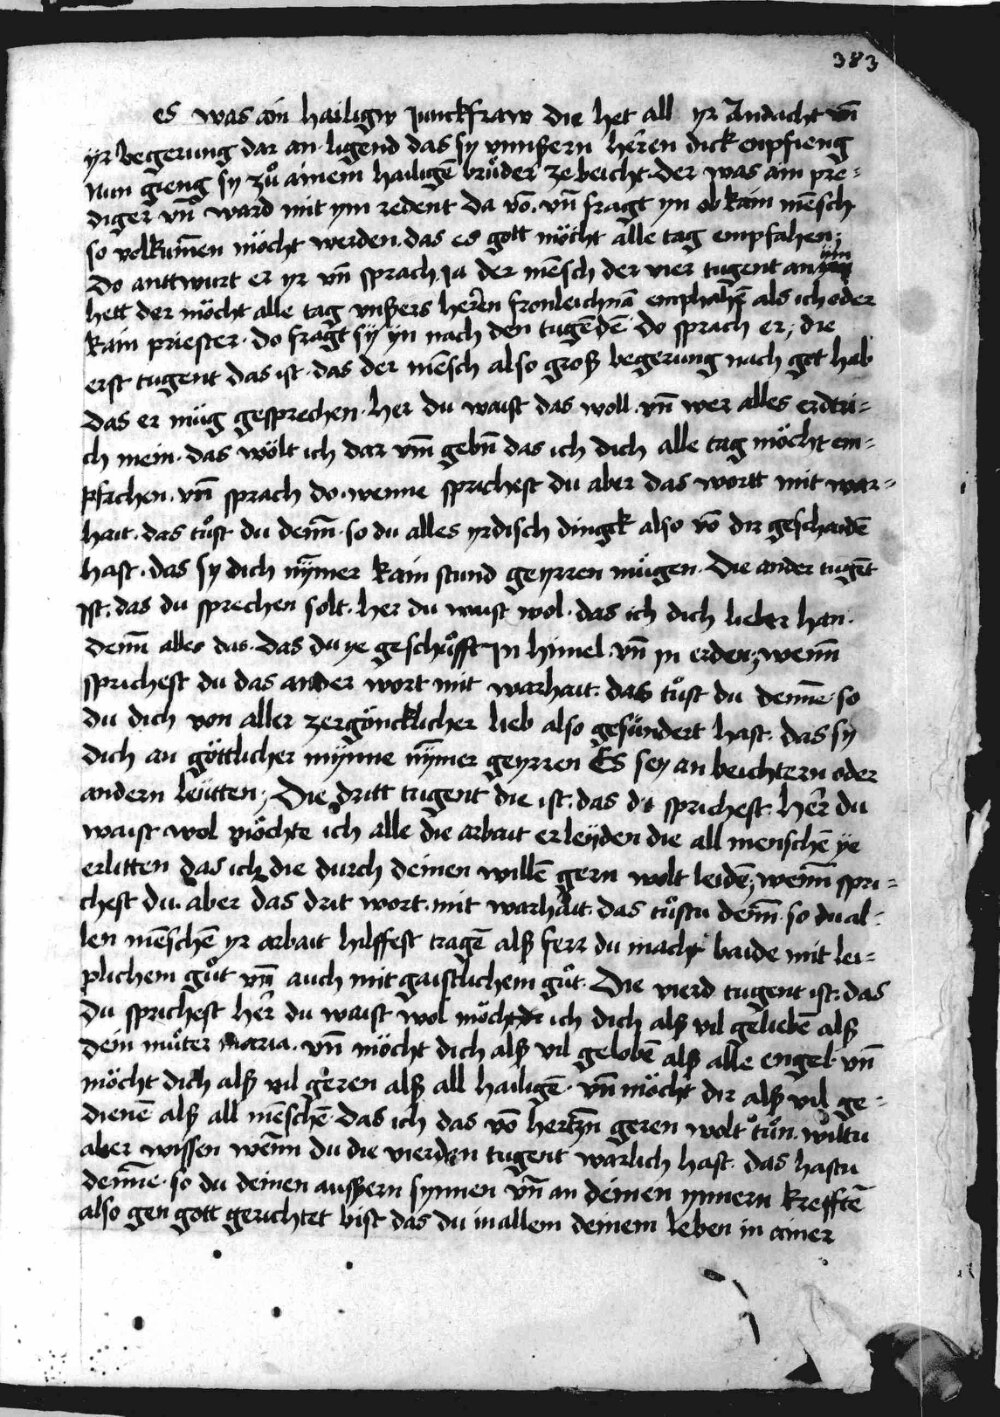 383
es was ain hailigw Junckfraw die het all yr Andacht vn̄
yr begerung dar an ligend das sy vnnsern herren dick enpfieng
Nun gieng sy zů ainem hailigē brůder ze beicht. der was ain pre=
diger vn̄ ward mit ym redent da vō. vn̄ fragt yn ob kain mēsch
so volkumēn möcht werden. das es gott möcht alle tag empfahen;
Do anttwurt er yr vn̄ sprach Ja der mēsch der vier tugent an ym
hett der möcht alle tag vnsers herren fronleichnā emphahē als ich oder
kain priester. do fragt sÿ yn nach den tugēdē. do sprach er; die
erst tugent das ist. das der mēsch also groß begerung nach got hab
das er müg gesprechen. her du waist das woll. vn̄ wer alles erdtri=
ch mein. das wölt ich dar vm̄ gebn̄ das ich dich alle tag möcht em=
pfachen. vn̄ sprach do. wenne sprichest du aber das wortt mit war=
hait. das tůst du denn̄. so du alles yrdisch dingk also vō dir geschaidē
hast. das sy dich nym̄er kain stund geyrren mügen. Die ander tugēt
Ist. das du sprechen solt. her du waist wol. das ich dich lieber han.
denn̄ alles das. das du ye geschůfft In himel. vn̄ in erden; wenn̄
sprichest du das ander wort mit warhait. das tůst du denne. so
du dich von aller zergöncklicher lieb also gesündert hast. das sy
dich an göttlicher mÿnne nym̄er geyrren Es sey an beichtern oder
andern leütten; Die dritt tugent die ist. das du sprichest. herr du
waist wol möchte ich alle die arbait erleyden die all menschē ye
erlitten das ich die durch deinen willē gern wolt leidē; wenn̄ spri=
chest du. aber das drit wort. mit warhait. das tůstu denn̄. so du al=
len mēschē yr arbait hilffest tragē alß ferr du macht baide mit lei=
plichem gůt vn̄ auch mit gaistlichem gůt. Die vierd tugent ist. das
du sprichest herr du waist wol möcht ich dich alß vil geliebē alß
dein můter Maria. vn̄ möcht dich alß vil gelobē alß alle engel. vn̄
möcht dich alß vil geren alß all hailigē. vn̄ möcht dir alß vil ge=
dienē alß all mēschē. das ich das vō hertzn̄ geren wolt tůn. wiltu
aber wissen wenn du die vierden tugent warlich hast. das hastu
denne. so du deinen aussern synnen vn̄ an deinen ynnern krefftē
also gen gott gerichtet bist das du in allem deinem leben in ainer